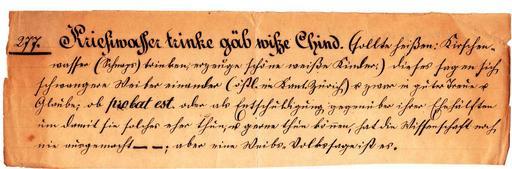 277. Kriesiwasser trinke gäb wiße Chind. (sollte heißen: Kirschen-
wasser (Schnaps) trinken, erzeuge schöne weiße Kinder.) Dieses sagen sich
schwangere Weiber einander (östl. in Kant. Zürich) u zwar in guter Treue u
Glaube; ob probat est. oder als Entschuldigung gegenüber ihrer Ehehälften
um damit sie solches eher thun, u gerne thun können, hat die Wissenschaft noch
nie ausgemacht — —; aber eine Weibs-Volkssage ist es.